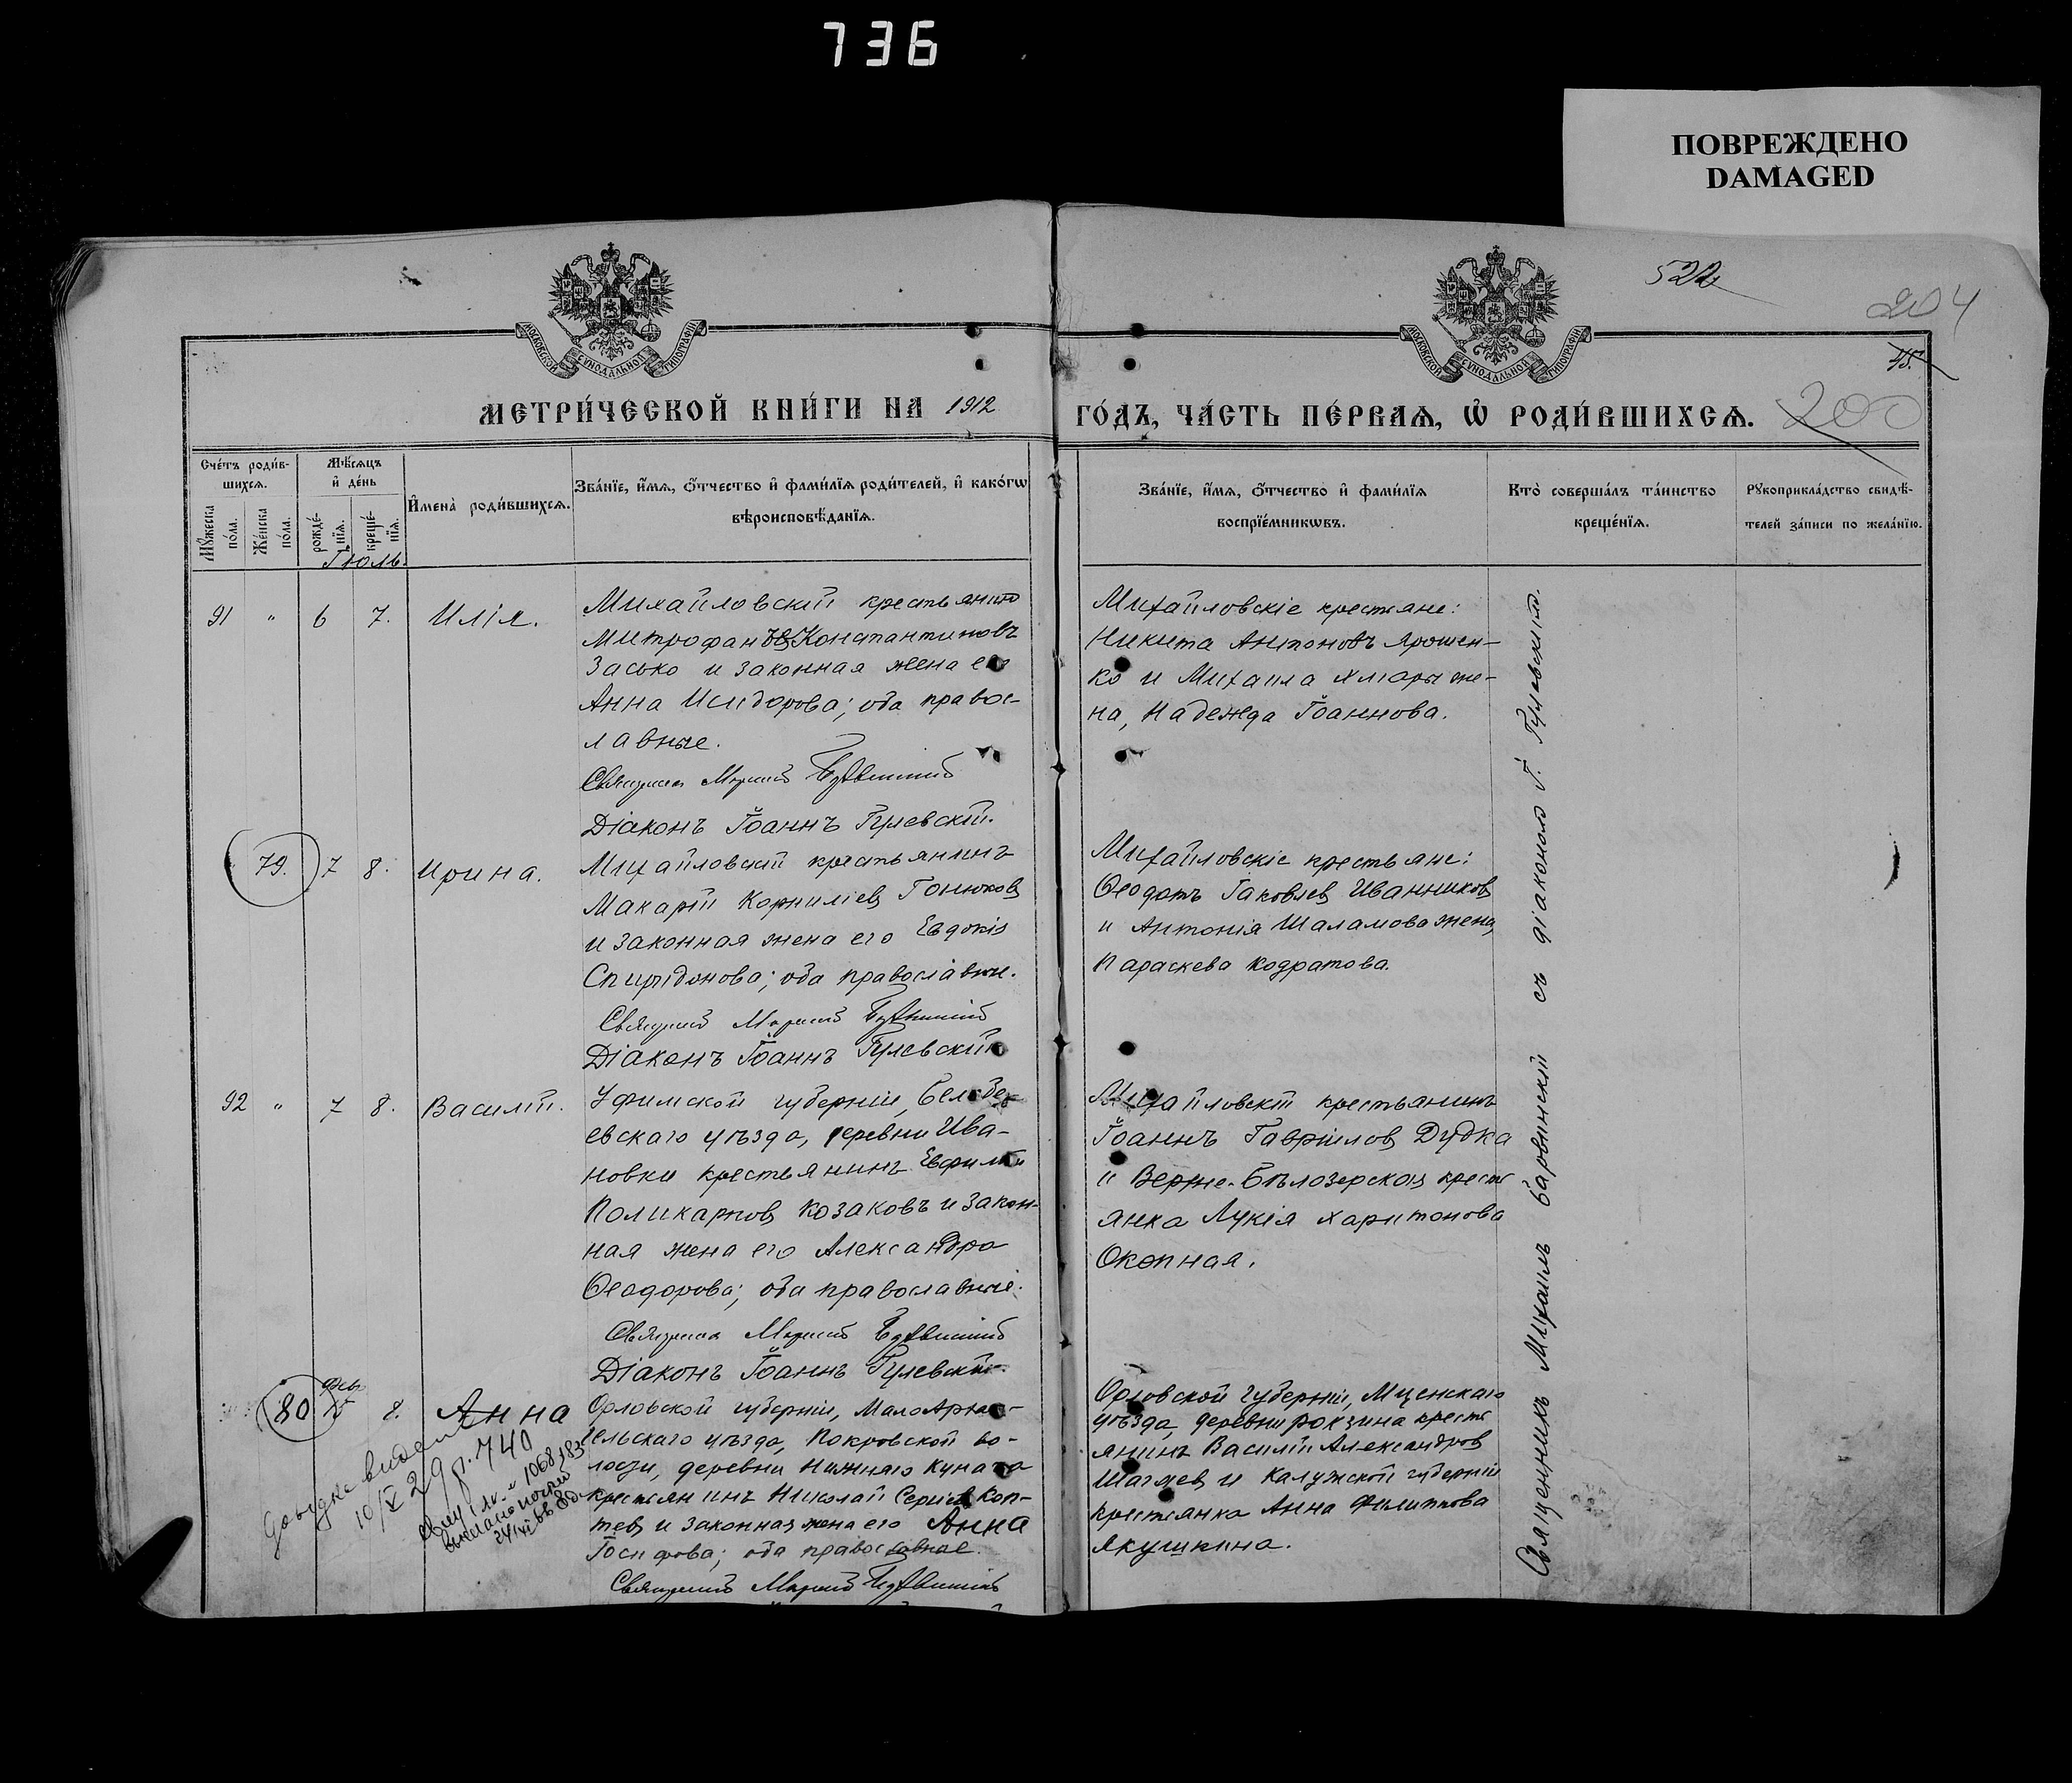 736
ПОВРЕЖДЕНО
DAMAGED
522
204
45.
200
МОСКОВСКОЙ СѴНОДАЛЬНОЙ ТИПОГРАФІИ
МОСКОВСКОЙ СѴНОДАЛЬНОЙ ТИПОГРАФІИ
МЕТРИ́ЧЕСКОЙ КНИ́ГИ НА 1912 ГО́ДЪ, ЧА́СТЬ ПЕ́РВАѦ, Ѡ҆ РОДИ́ВШИХСѦ.
Сче́тъ роди́в-
шихсѧ.
Мꙋ́жеска по́ла.
Же́нска по́ла.
Мѣ́сѧцъ
и҆ де́нь
рожде́-
нїѧ.
креще́-
нїѧ.
И҆мена̀ роди́вшихсѧ.
Зва́нїе, и҆́мѧ, ѻ҆́тчество и҆ фами́лїѧ роди́телей, и҆ како́гѡ
вѣроисповѣ́данїѧ.
Зва́нїе, и҆́мѧ, ѻ҆́тчество и҆ фами́лїѧ
воспрїе́мникѡвъ.
Кто̀ соверша́лъ та́инство
креще́нїѧ.
Рꙋкоприкла́дство свидѣ́-
телей за́писи по жела́нїю.
Іюль.
91 " 6 7. Илія.
Михайловскій крестьянинъ
Митрофанъ Константиновъ
Засько и законная жена его
Анна Исидорова; оба правос-
лавные.
Священник
Діаконъ Іоаннъ Гулевскій.
Михайловскіе крестьяне:
Никита Антоновъ Ярошен-
ко и Михаила Хмары же-
на, Надежда Іоаннова.
" 79. 7 8. Ирина.
Михайловскій крестьянинъ
Макарій Корниліев Гонюков
и законная жена его Евдокія
Спиридонова; оба православные.
Діаконъ Іоаннъ Гулевскій
Михайловскіе крестьяне:
Ѳеодотъ Іаковлев Иванников
и Антонія Шаламова жена,
Параскева Кодратова.
92 " 7 8. Василій.
Уфимской губерніи, Белебе-
евскаго уѣзда, деревни Ива-
новки крестьянинъ Евфимій
Поликарпов Козаковъ и закон-
ная жена его Александра
Ѳеодорова; оба православные.
Діаконъ Іоаннъ Гулевскій.
Михайловскій крестьянинъ
Іоаннъ Гавріилов Дудка
и Верхне-Бѣлозерская кресть
янка Лукія Харитонова
Окопная.
80. 8. Анна
Орловской губерніи, Малоархан-
гельскаго уѣзда, Покровской во-
лости, деревни Нижняго Кунача
крестьянинъ Николай Сергіев Коп-
тев и законная жена его Анна
Іосифова; оба православные.
Орловской губерніи, Мценскаго
уѣзда, деревни Рокзина кресть
янинъ Василій Александров
Шагаев и Калужской губерніи
крестьянка Анна Филиппова
Якушкина.
10/V 29 р. 740
Священникъ Михаилъ Барвинскій съ діакономъ І. Гулевскимъ.